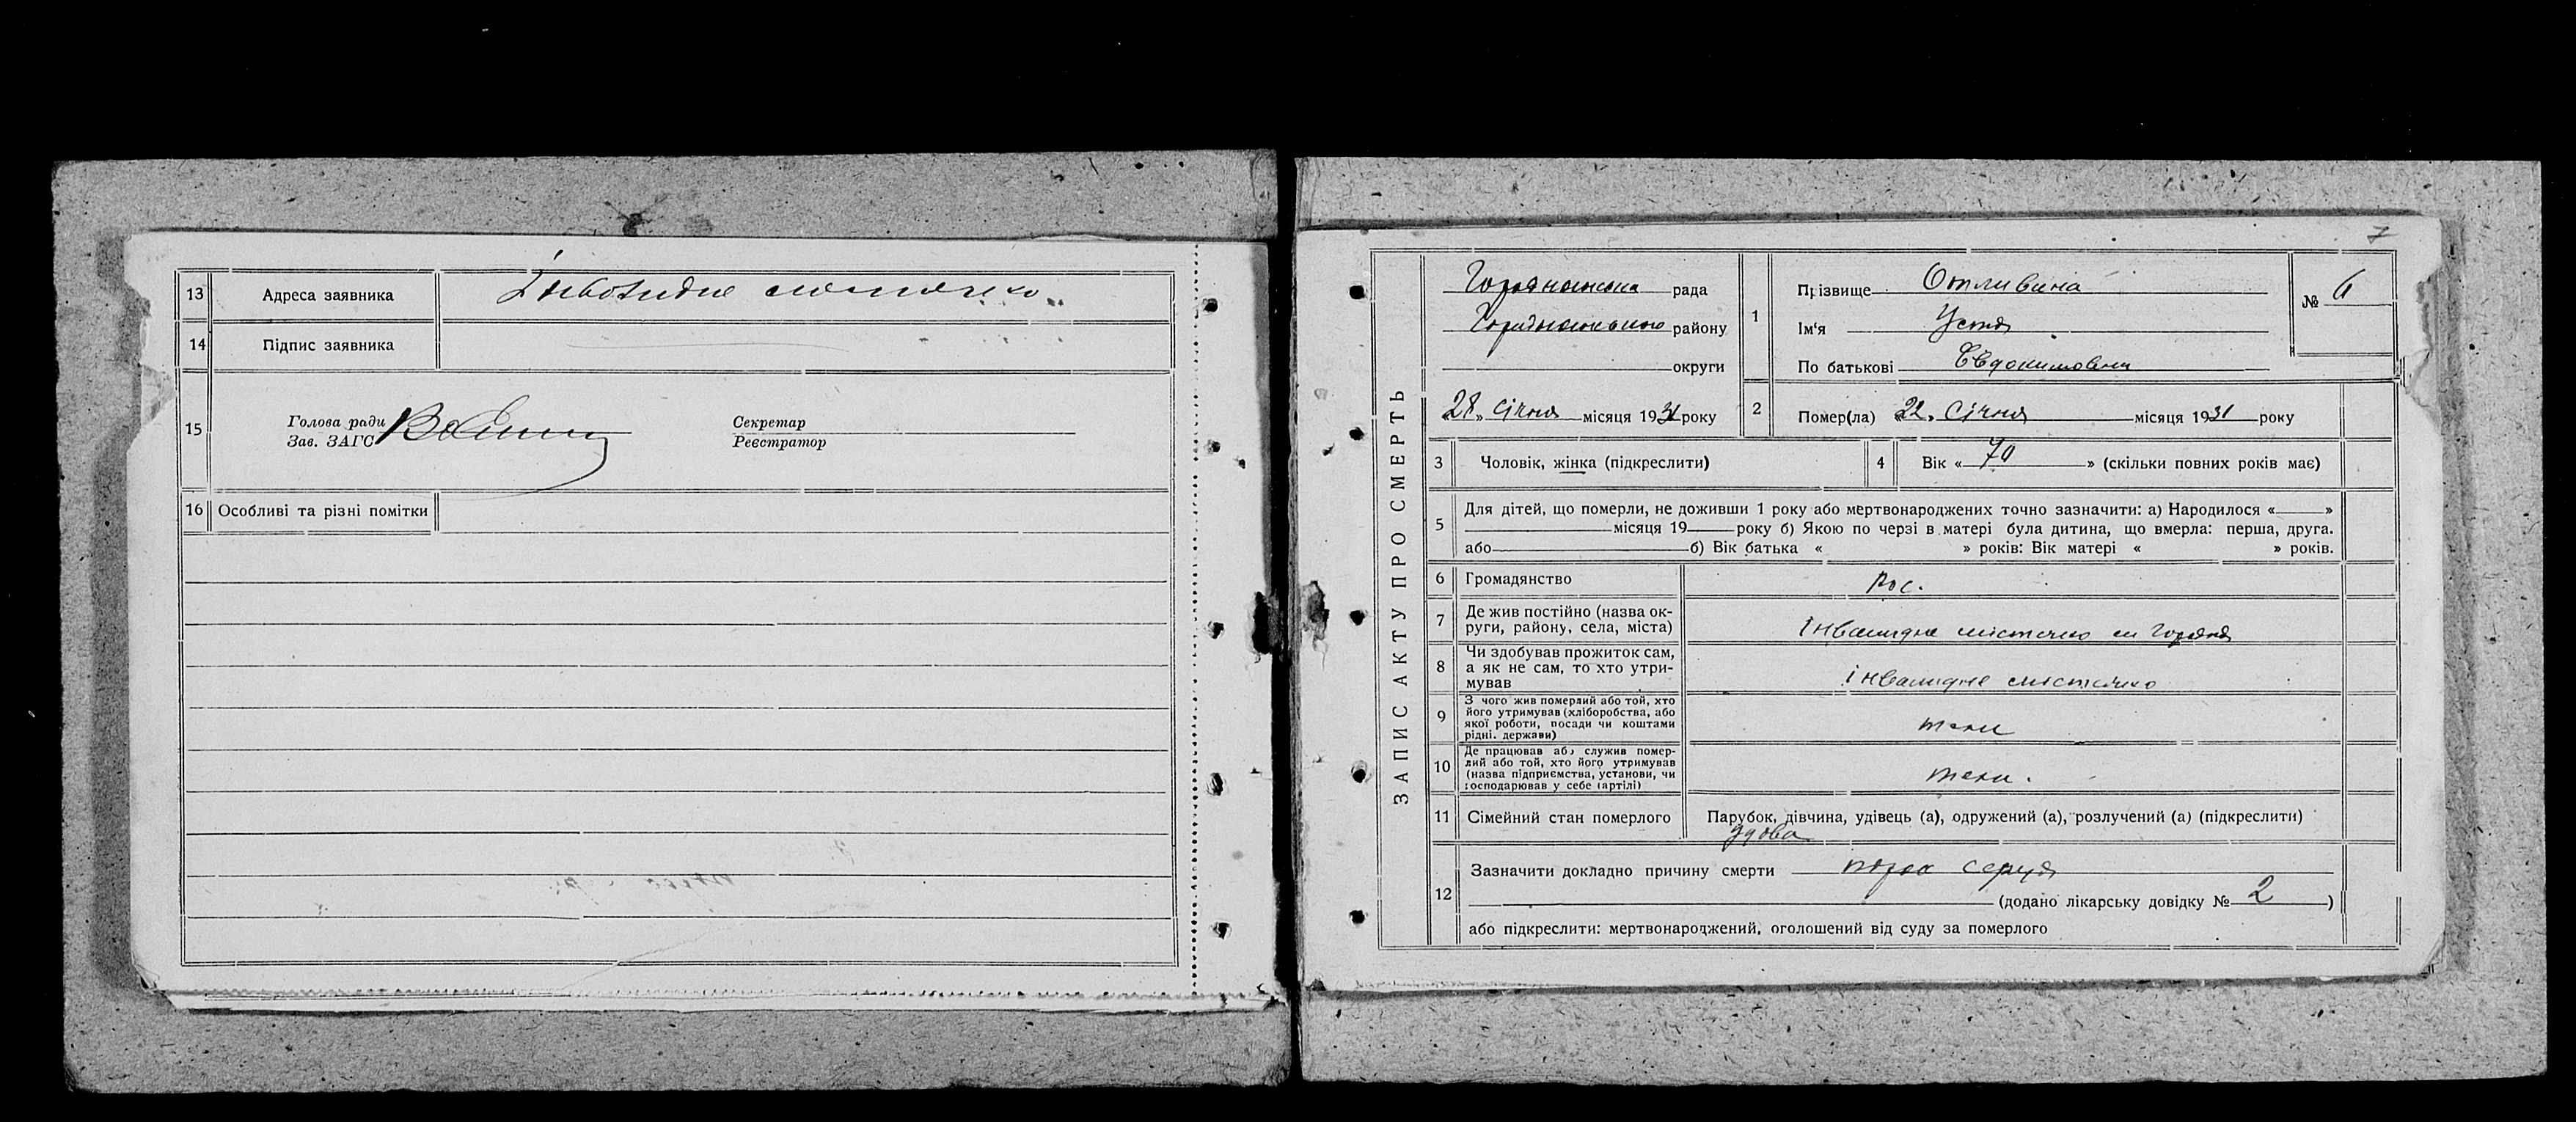 13 Адреса заявника Інвалидне містечко
14 Підпис заявника
15 Голова ради
Зав. ЗАГС
Секретар
Реєстратор
16 Особливі та різні помітки
7
ЗАПИС АКТУ ПРО СМЕРТЬ
Городнянська рада
Городнянського району
округи
«28» січня місяця 1931 року
1 Прізвище Отливина
Ім'я Устя
По батькові Євдокимовна
№ 6
2 Помер(ла) «22» січня місяця 1931 року
3 Чоловік, жінка (підкреслити)
4 Вік «70» (скільки повних років має)
5 Для дітей, що померли, не доживши 1 року або мертвонароджених точно зазначити: а) Народилося « »
місяця 19 року б) Якою по черзі в матері була дитина, що вмерла: перша, друга.
або б) Вік батька « » років: Вік матері « » років.
6 Громадянство рос.
7 Де жив постійно (назва ок-
руги, району, села, міста) інвалидне містечко м Городня
8 Чи здобував прожиток сам,
а як не сам, то хто утри-
мував інвалидне містечко
9 З чого жив померлий або той, хто
його утримував (хліборобства, або
якої роботи, посади чи коштами
рідні. держави)
10 Де працював або служив помер-
лий або той, хто його утримував
(назва підприємства, установи, чи
господарював у себе (артілі)
11 Сімейний стан померлого Парубок, дівчина, удівець (а), одружений (а), розлучений (а) (підкреслити)
удова
12 Зазначити докладно причину смерти порок серця
(додано лікарську довідку № 2)
або підкреслити: мертвонароджений, оголошений від суду за померлого